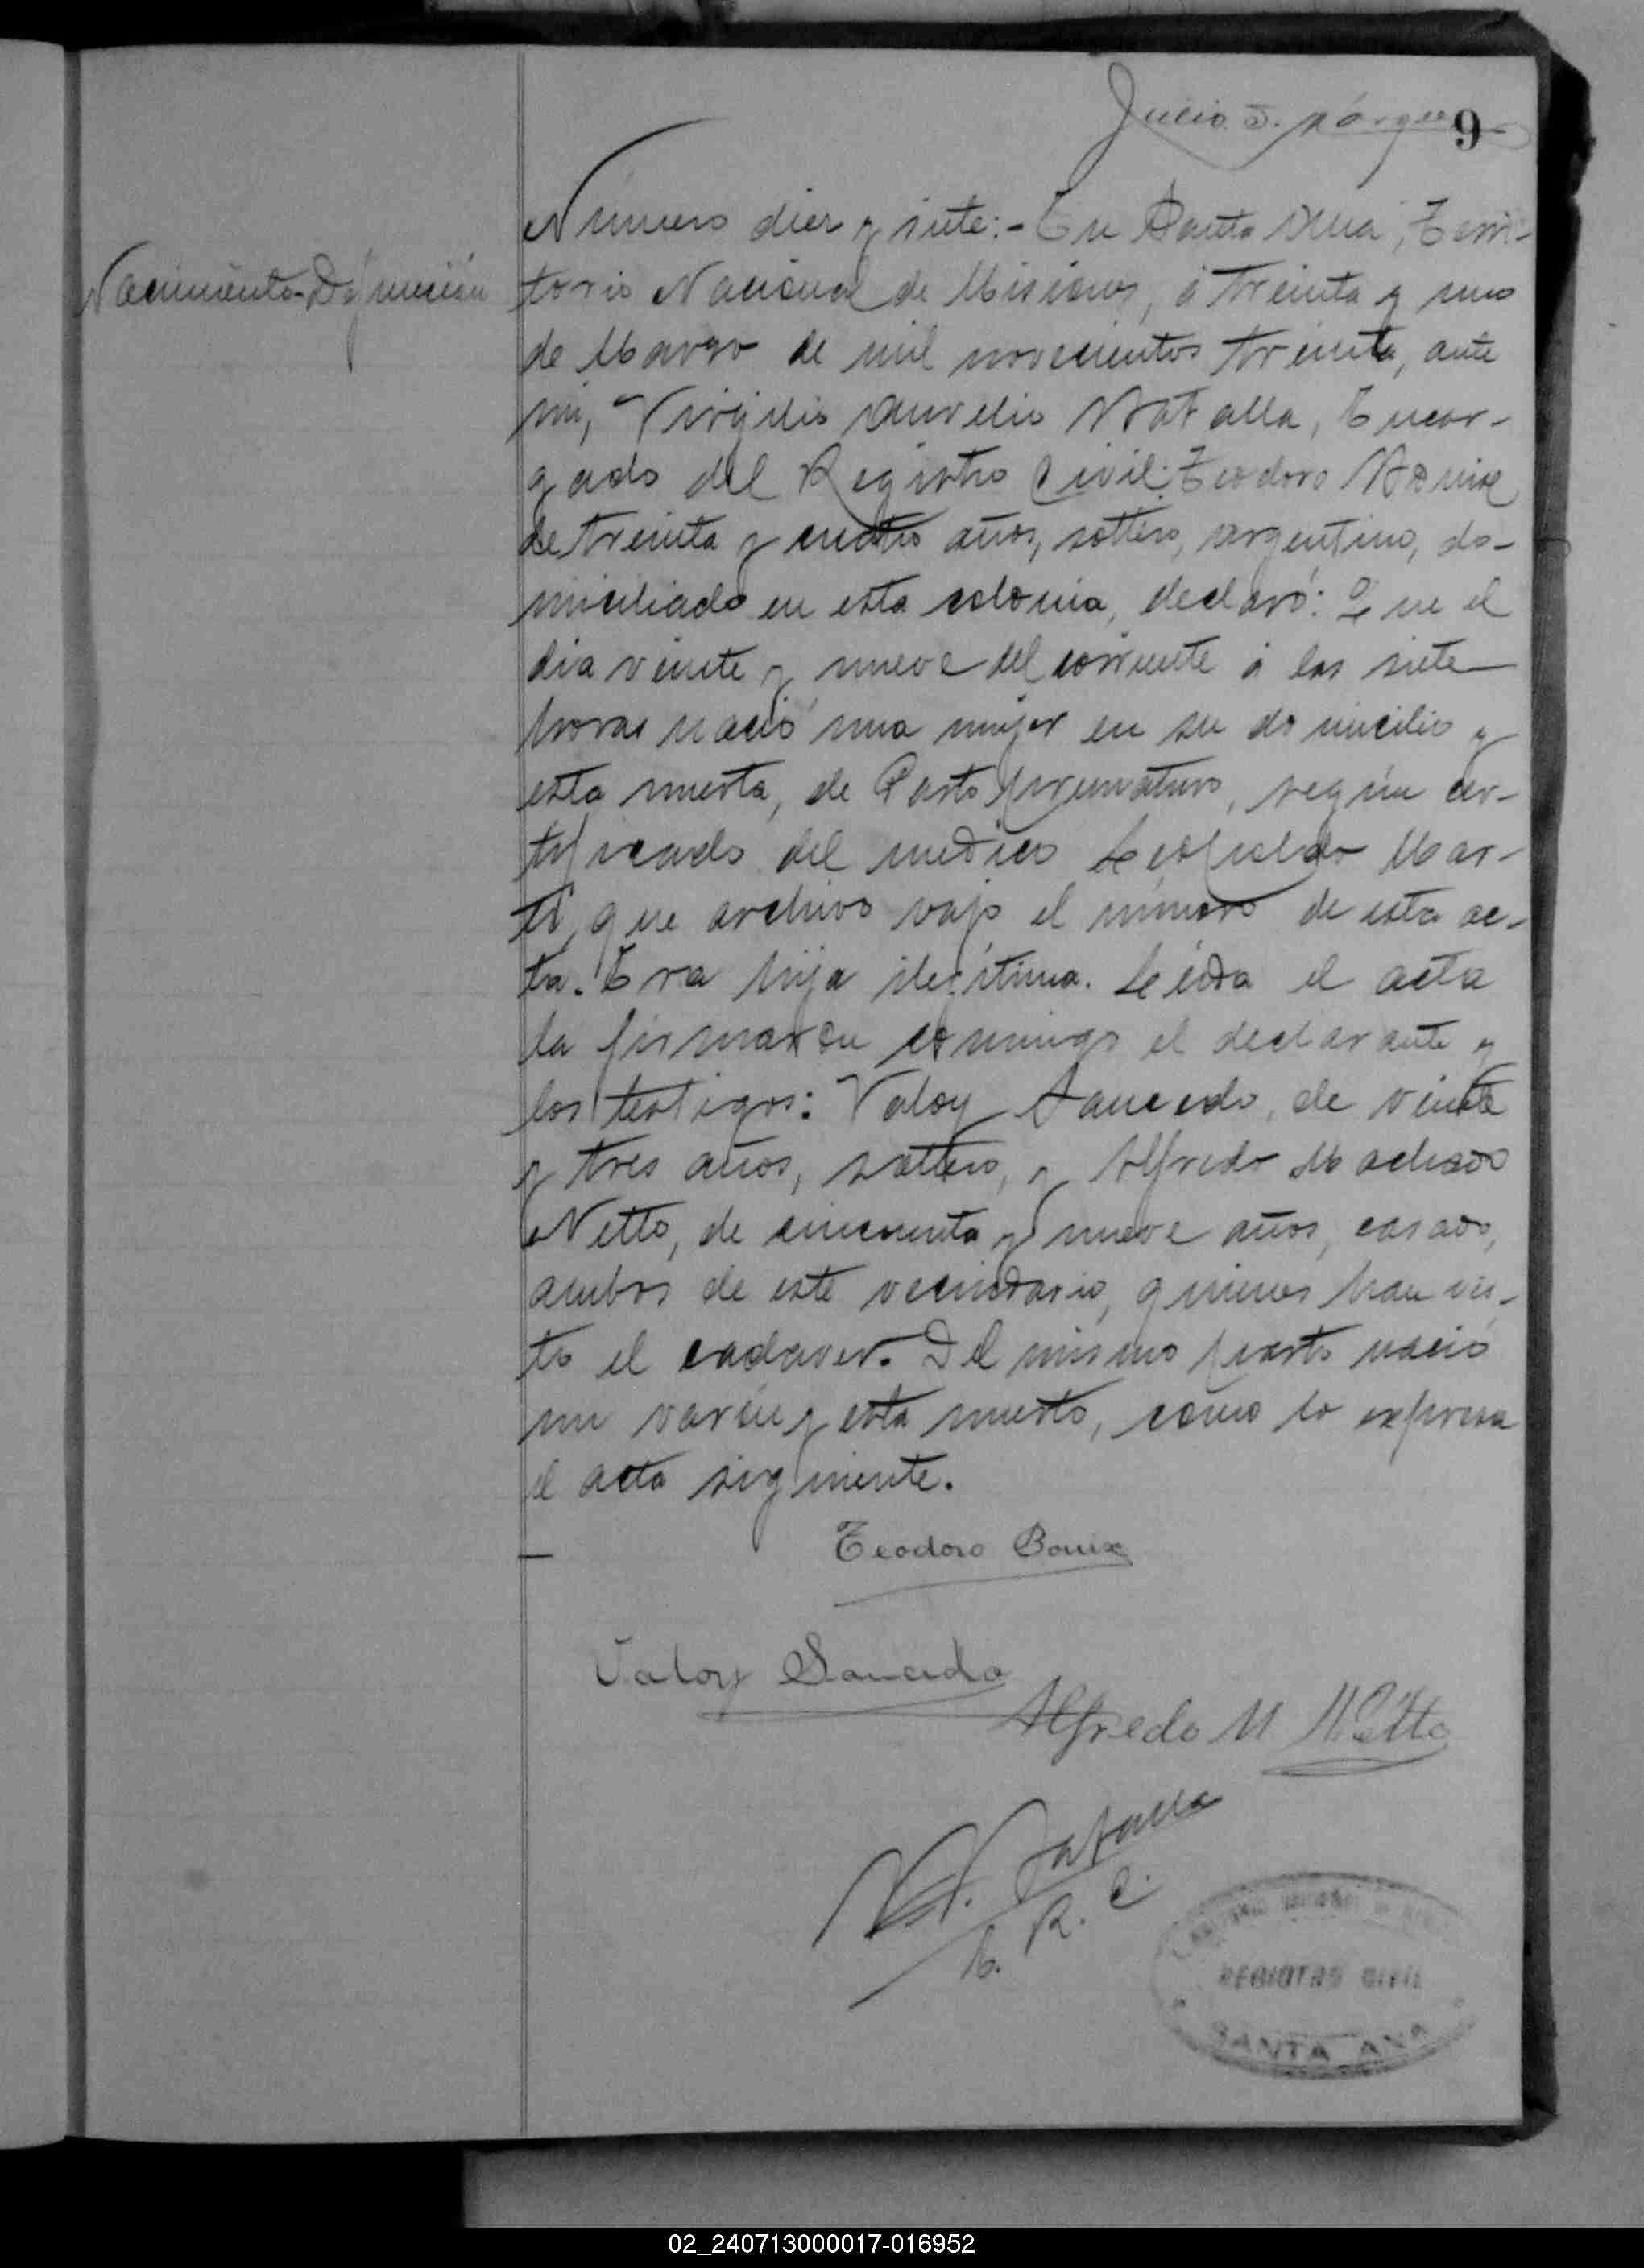 Julio
9
Número diez y siete:- En Santa Ana, Terri-
Nacimiento-Defunción
torio Nacional de Misiones, á treinta y uno
de Marzo de mil novecientos treinta, ante
mi, Virgilio Aurelio Natalla, Encar-
gado del Registro Civil: Teodoro Bonix
de treinta y cuatro años, soltero, argentino, do-
miciliado en esta colonia, declaró: Que el
dia veinte y nueve del corriente á las siete
horas nació una mujer en su domicilio y
esta muerta, de Parto prematuro, según cer-
tificado del medico Leopoldo Mar-
ti, que archivo vajo el número de esta ac-
ta. Era hija ilegítima. Leida el acta
la firmaron conmigo el declarante y
los testigos: Valoy Saucedo, de veinte
y tres años, soltero, y Alfredo Machado
Netto, de cincuenta y nueve años, casado,
ambos de este vecindario, quienes han vis-
to el cadaver. Del mismo parto nació
un varón y esta muerto, como lo expresa
el acta siguiente.
Teodoro Bonix
Valoy Saucedo
Alfredo M Netto
E. R. C.
REGISTRO CIVIL
SANTA ANA
02_240713000017-016952